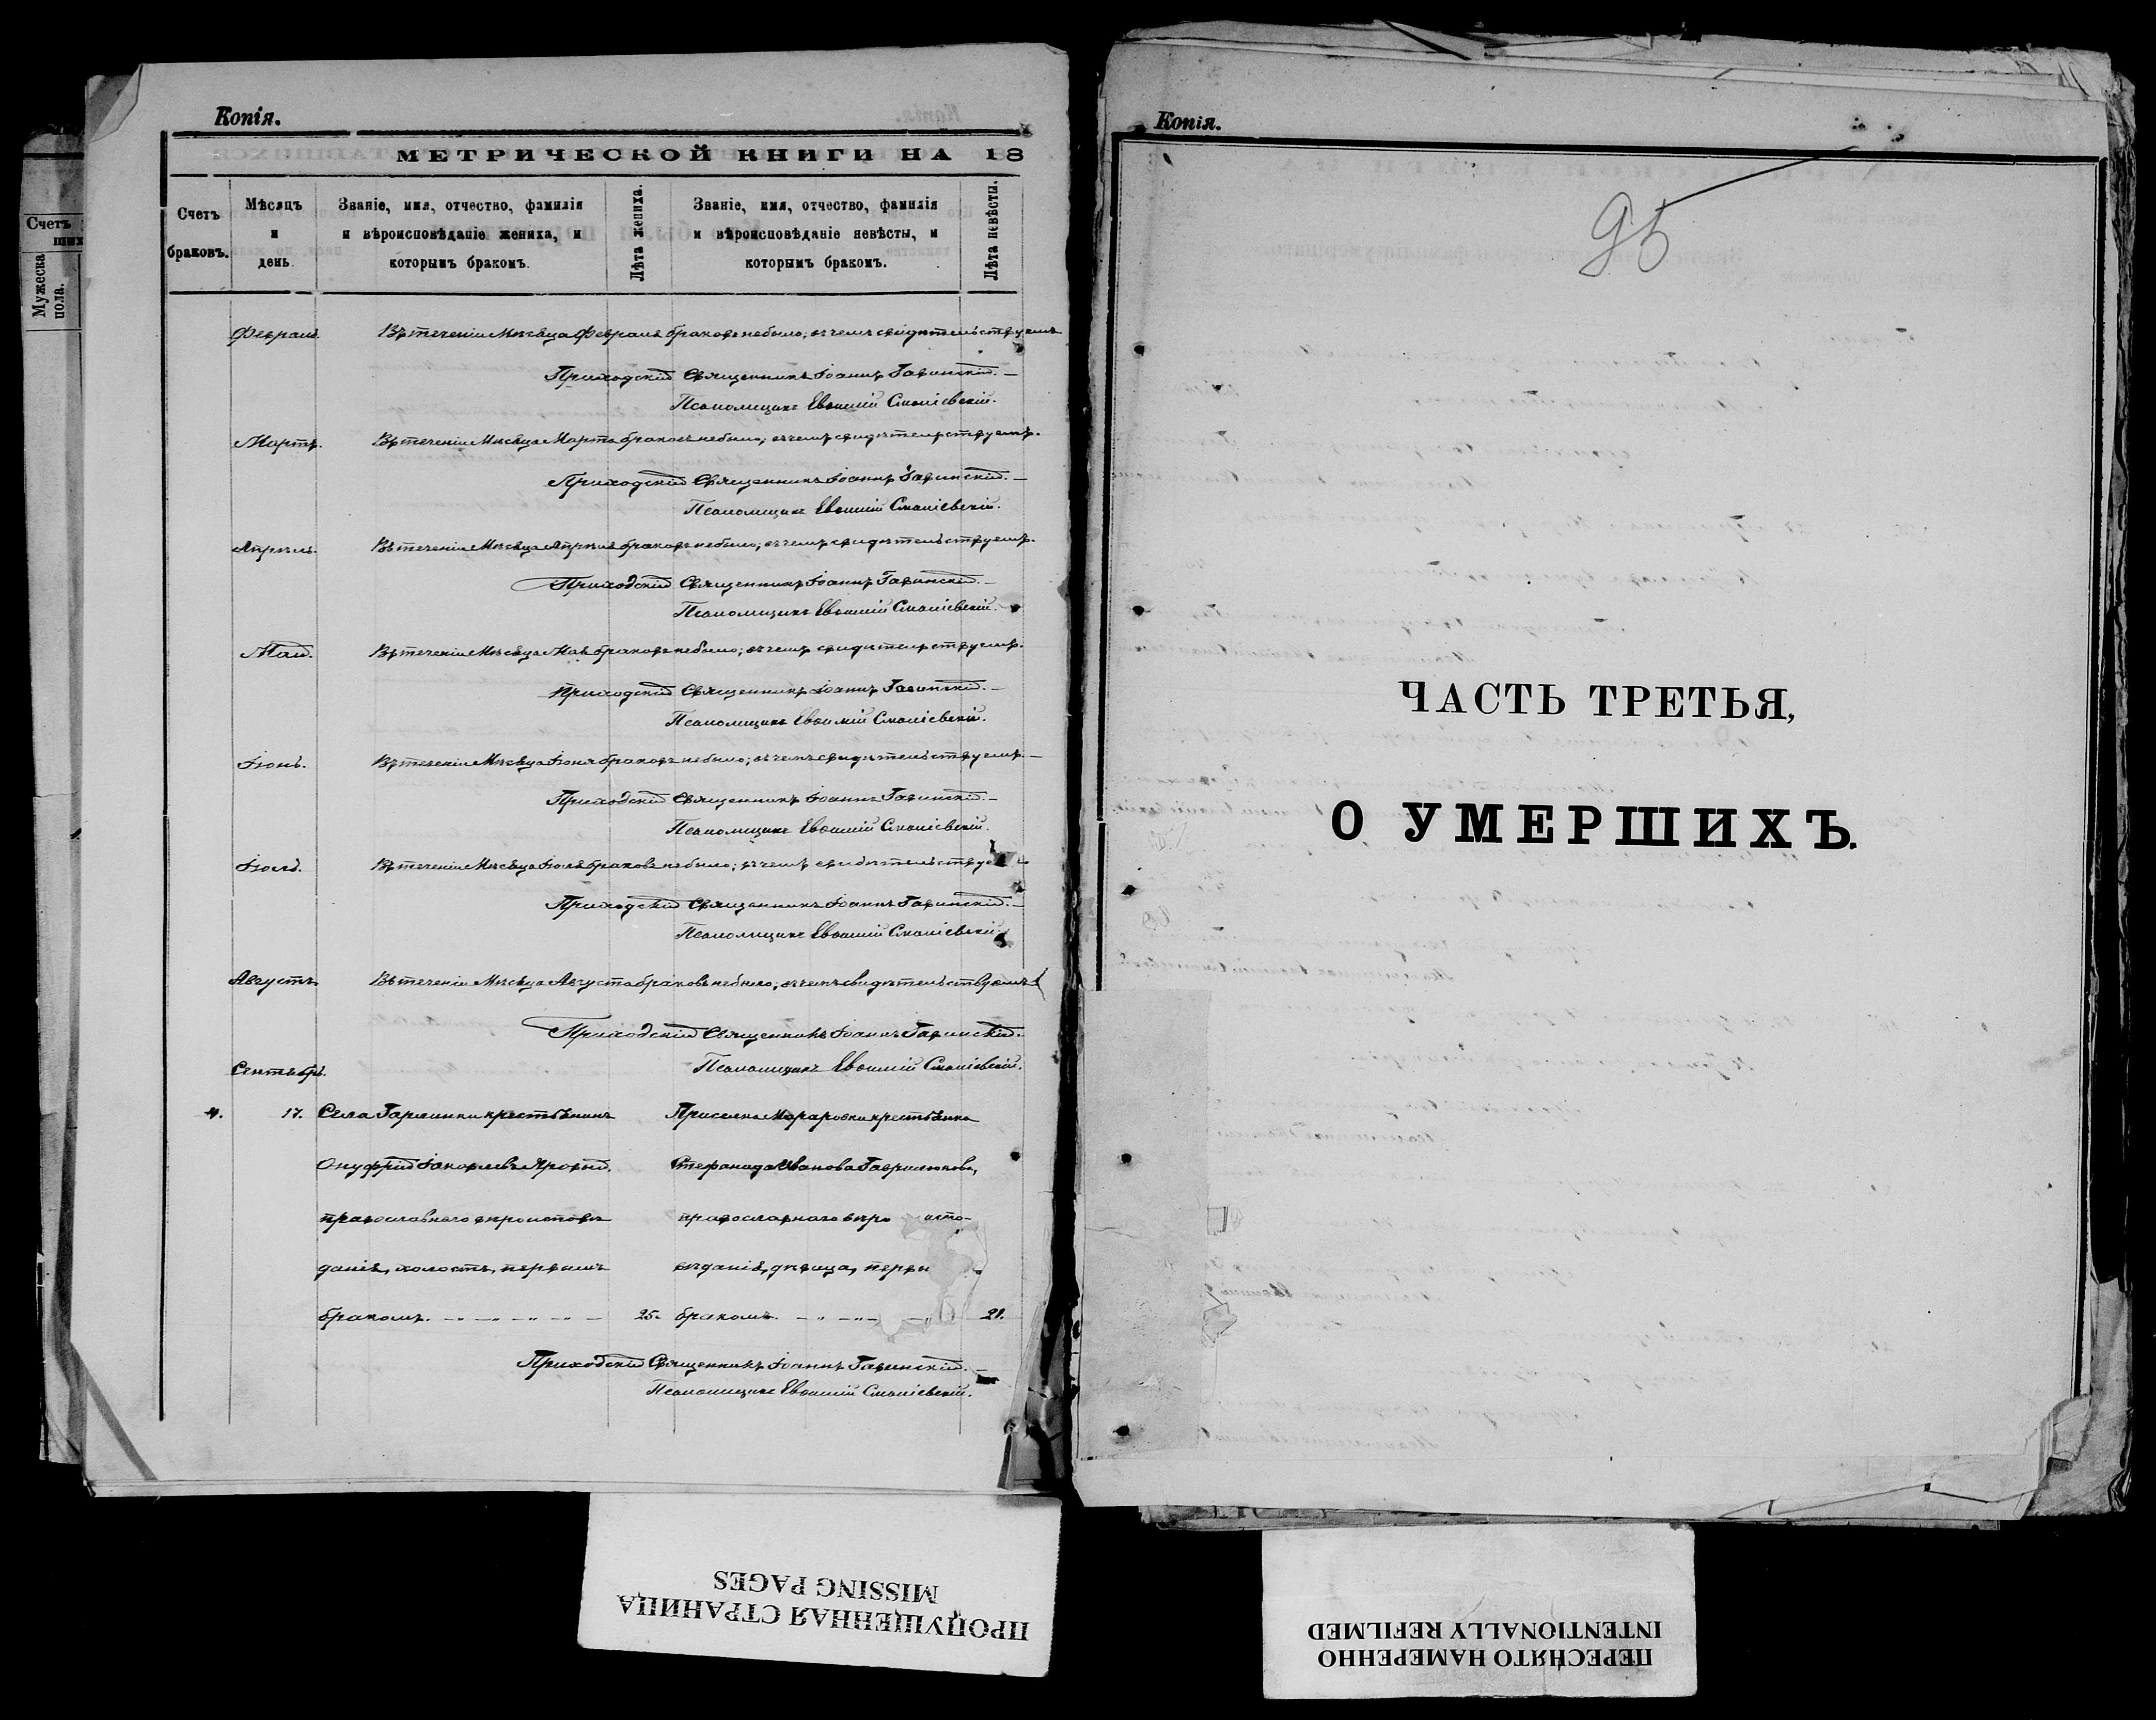 Счетъ
ших
Мужеска
пола.
Копія.
МЕТРИЧЕСКОЙ КНИГИ НА 18
Счетъ
браковъ.
Мѣсяцъ
и
день.
Званіе, имя, отчество, фамилія
и вѣроисповѣданіе жениха, и
которымъ бракомъ.
Лѣта жениха.
Званіе, имя, отчество, фамилія
и вѣроисповѣданіе невѣсты, и
которымъ бракомъ.
Лѣта невѣсты.
Февраль. Въ теченіи Мѣсяца Февраля браковъ небыло; въ чемъ свидѣтельствуемъ
Приходскій Священникъ Іоаннъ
Псаломщикъ Евѳимій
Мартъ. Въ теченіи Мѣсяца Марта браковъ небыло; въ чемъ свидѣтельствуемъ.
Приходскій Священникъ Іоаннъ
Псаломщикъ Евѳимій
Апрѣль. Въ теченіи Мѣсяца Апрѣля браковъ небыло; въ чемъ свидѣтельствуемъ.
Приходскій Священникъ Іоаннъ
Псаломщикъ Евѳимій
Май. Въ теченіи Мѣсяца Мая браковъ небыло; въ чемъ свидѣтельствуемъ.
Приходскій Священникъ Іоаннъ
Псаломщикъ Евѳимій
Іюнь. Въ теченіи Мѣсяца Іюня браковъ небыло; въ чемъ свидѣтельствуемъ.
Приходскій Священникъ Іоаннъ
Псаломщикъ Евѳимій
Іюль. Въ теченіи Мѣсяца Іюля браковъ небыло; въ чемъ
Приходскій Священникъ Іоаннъ
Псаломщикъ Евѳимій
Августъ. Въ теченіи Мѣсяца Августа браковъ небыло; въ чемъ свидѣтельствуемъ
Приходскій Священникъ Іоаннъ
Псаломщикъ Евѳимій
Сентябрь.
4. 17. Села крестьянинъ
Приселка крестьянка
Онуфрій Іаковлевъ Яровый.
Стефанида Иванова Гаврилюкова,
православнаго вѣроисповѣ
православнаго вѣро испо-
данія, холостъ, первымъ
вѣданія, дѣвица, первы
бракомъ. 25. бракомъ. 21.
Приходскій Священникъ Іоаннъ
Псаломщикъ Евѳимій
Копія.
95
ЧАСТЬ ТРЕТЬЯ,
О УМЕРШИХЪ.
ПРОПУЩЕННАЯ СТРАНИЦА
MISSING PAGES
ПЕРЕСНЯТО НАМЕРЕННО
INTENTIONALLY REFILMED